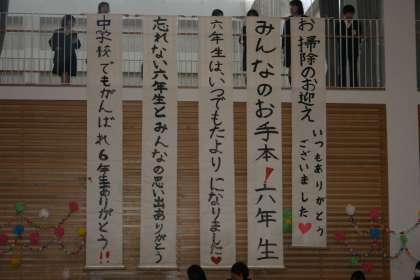 お掃除のお迎え
いつもありがとう
ございました♥
みんなのお手本!六年生
六年生は、いつでもたよりになりました♥
忘れない六年生とみんなの思い出ありがとう
中学校でもがんばれ6年生ありがとう!!